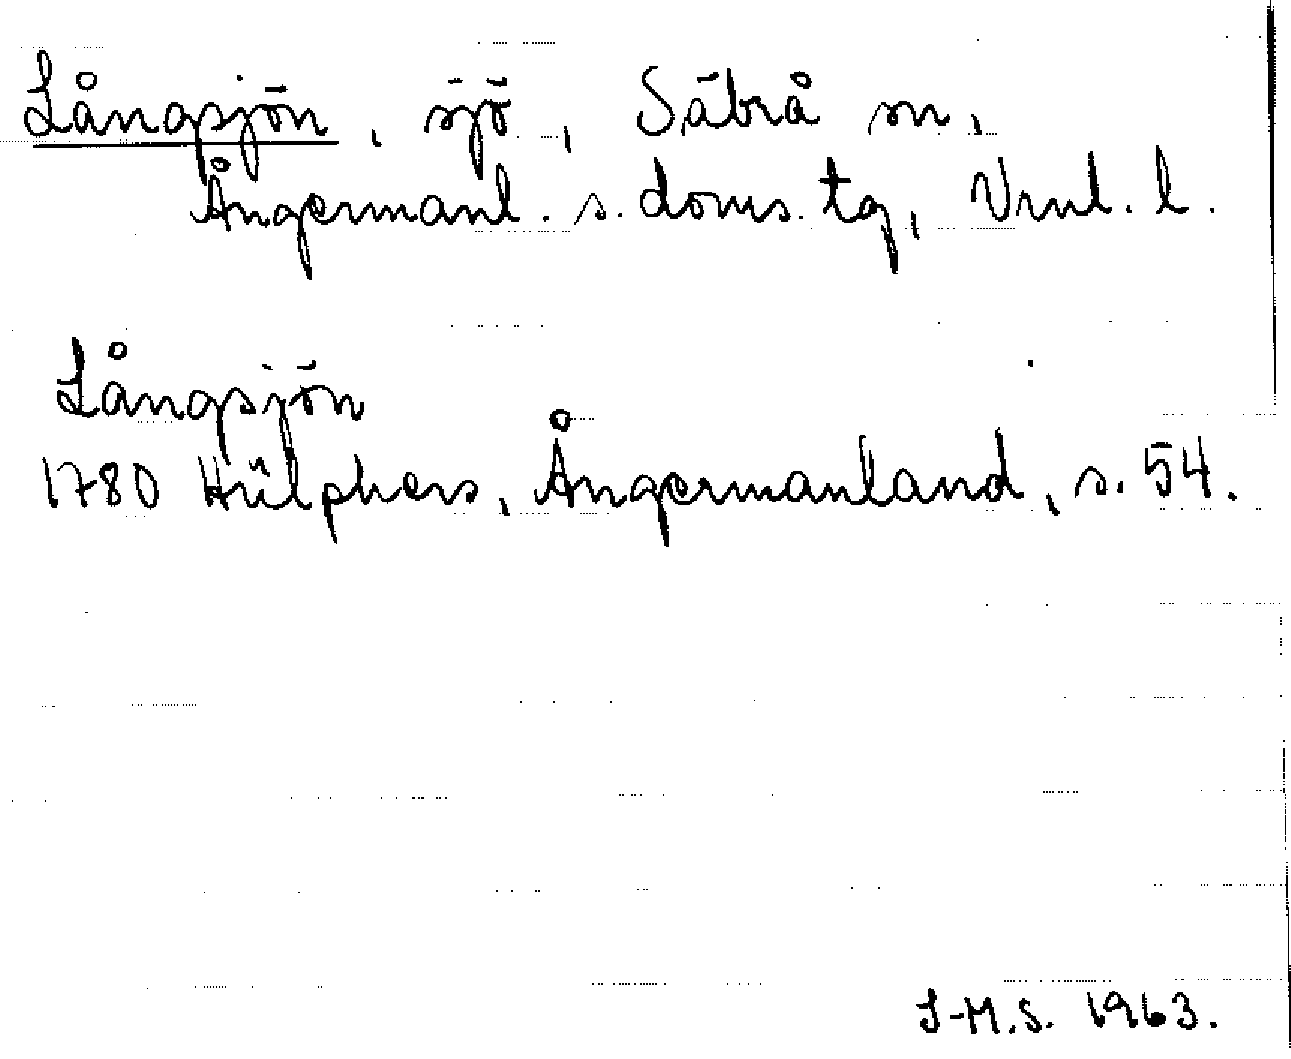 Långsjön, sjö, Säbrå sn,
Ångermanl. s. doms. tg, Vrnl. l.
Långsjön
1780 Hülphers, Ångermanland, s. 54.
I-M.S. 1963.